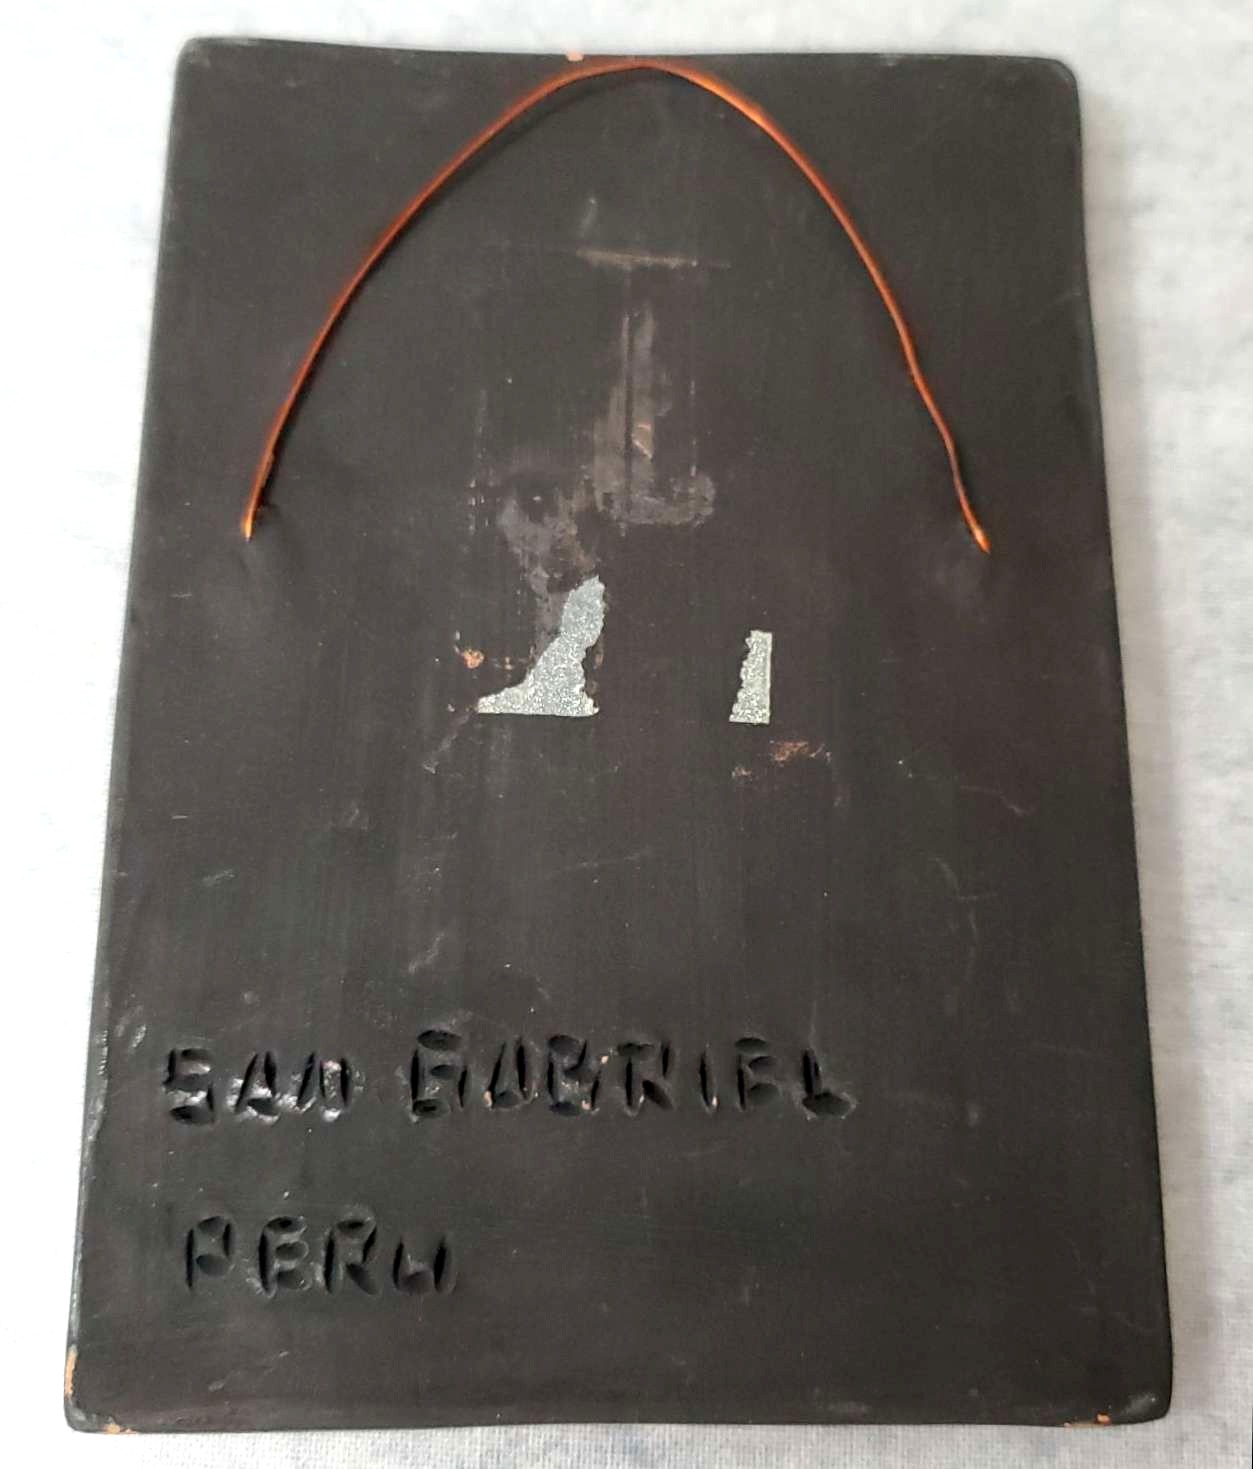 SAN GABRIEL
PERU